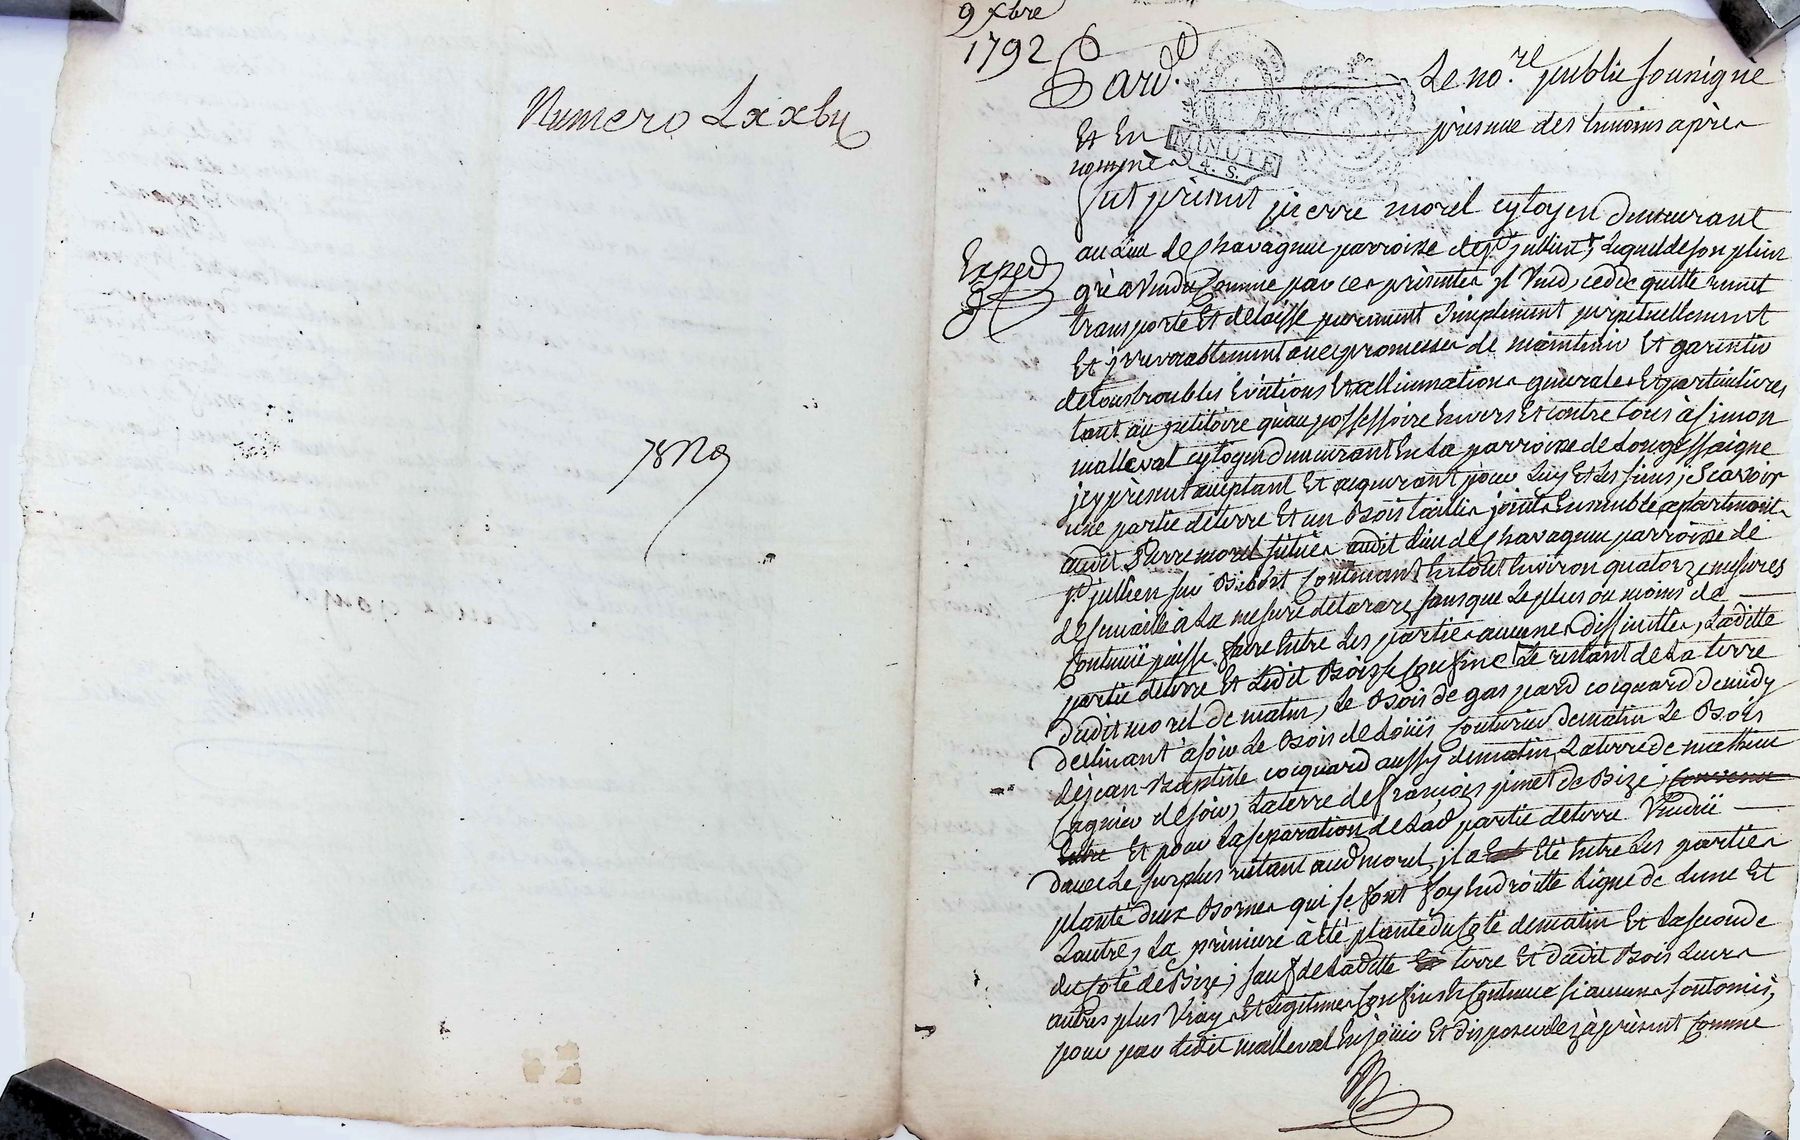 Numero Lxxbii
9 xbre
1792
Pard.t
Le no.re public sousigné
Et En presence des temoins après
MINUTE
4. S.
nommés
fut present pierre morel cytoyen demeurant
Exped
au Lieu de Chavagnieu parroisse de s.t jullien, Lequel de son plein
gré a Vendu Comme par ces présentes il Vend, cede quitte remet
transporte Et delaisse purement Simplement perpetuellement
Et jrrevocablement avec promesse de maintenir Et garentir
de tous troubles Evictions Et allienations generales Et particulieres
tant au petitoire qu'au possessoire Envers Et contre tous à simon
malleval cytoyen demeurant En La parroisse de Longessaigne
jcy présent acceptant Et aquerant pour Luy Et Les siens, Scavoir
une partie de terre Et un Bois taillis joints Ensemble apartenant
audit Pierre morel situés audit Lieu de Chavagnieu parroisse de
s.t jullien sur Bibôst Contenant En tout Environ quatorze mesures
de semaille à La mesure de tarare, sans que Le plus ou moins de
Contenüe puisse faire Entre Les parties aucunes difficultés, Laditte
partie de terre Et Ledit Bois se Confine Le restant de La terre
dudit morel de matin, Le Bois de gaspard cocquard de midy
declinant à soir Le Bois de Loüis Couturier de matin Le Bois
de jean Baptiste cocquard aussy de matin, La terre de mathieu
Cagnier de soir, La terre de françois pinet de Bize,
Et pour La separation de Lad partie de terre Venduë
davec Le surplus restant aud morel, il a Eté Entre Les parties
planté deux Bornes qui se font foy En droitte Ligne de Lune Et
Lautre, La premiere a été planté du Côté de matin Et La seconde
du Côté de Bize, sauf de Laditte terre Et dudit Bois Leurs
autres plus Vrays Et Legitimes Confins Et Contenue si aucuns sont omis,
pour par Ledit malleval En joüir Et disposer dez à présent Comme